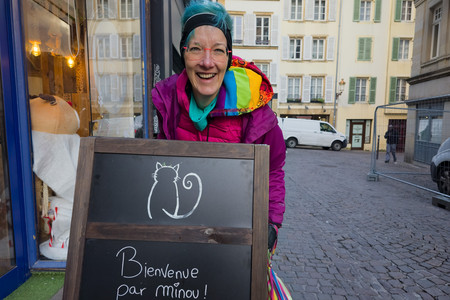 Bienvenue
par minou !